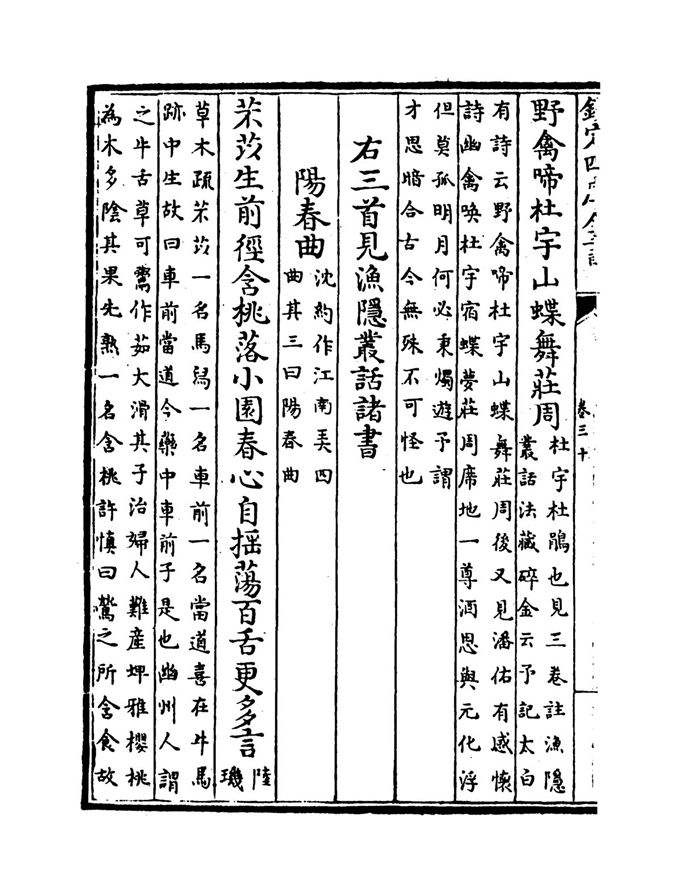 野禽啼杜宇山蝶舞莊周
杜宇杜鵑也見三卷註漁隱
叢話法藏碎金云予記太白
有詩云野禽啼杜宇山蝶舞莊周後又見潘佑有感懷
詩幽禽喚杜宇宿蝶夢莊周席地一尊酒思與元化浮
但莫孤明月何必秉燭遊予謂
才思暗合古今無殊不可怪也
右三首見漁隱叢話諸書
陽春曲
沈約作江南弄四
曲其三曰陽春曲
芣苡生前徑含桃落小園春心自搖蕩百舌更多言
陸
璣
草木疏芣苡一名馬舄一名車前一名當道喜在牛馬
跡中生故曰車前當道今藥中車前子是也幽州人謂
之牛舌草可鬻作茹大滑其子治婦人難産埤雅櫻桃
為木多陰其果先熟一名含桃許慎曰鶯之所含食故
卷三十